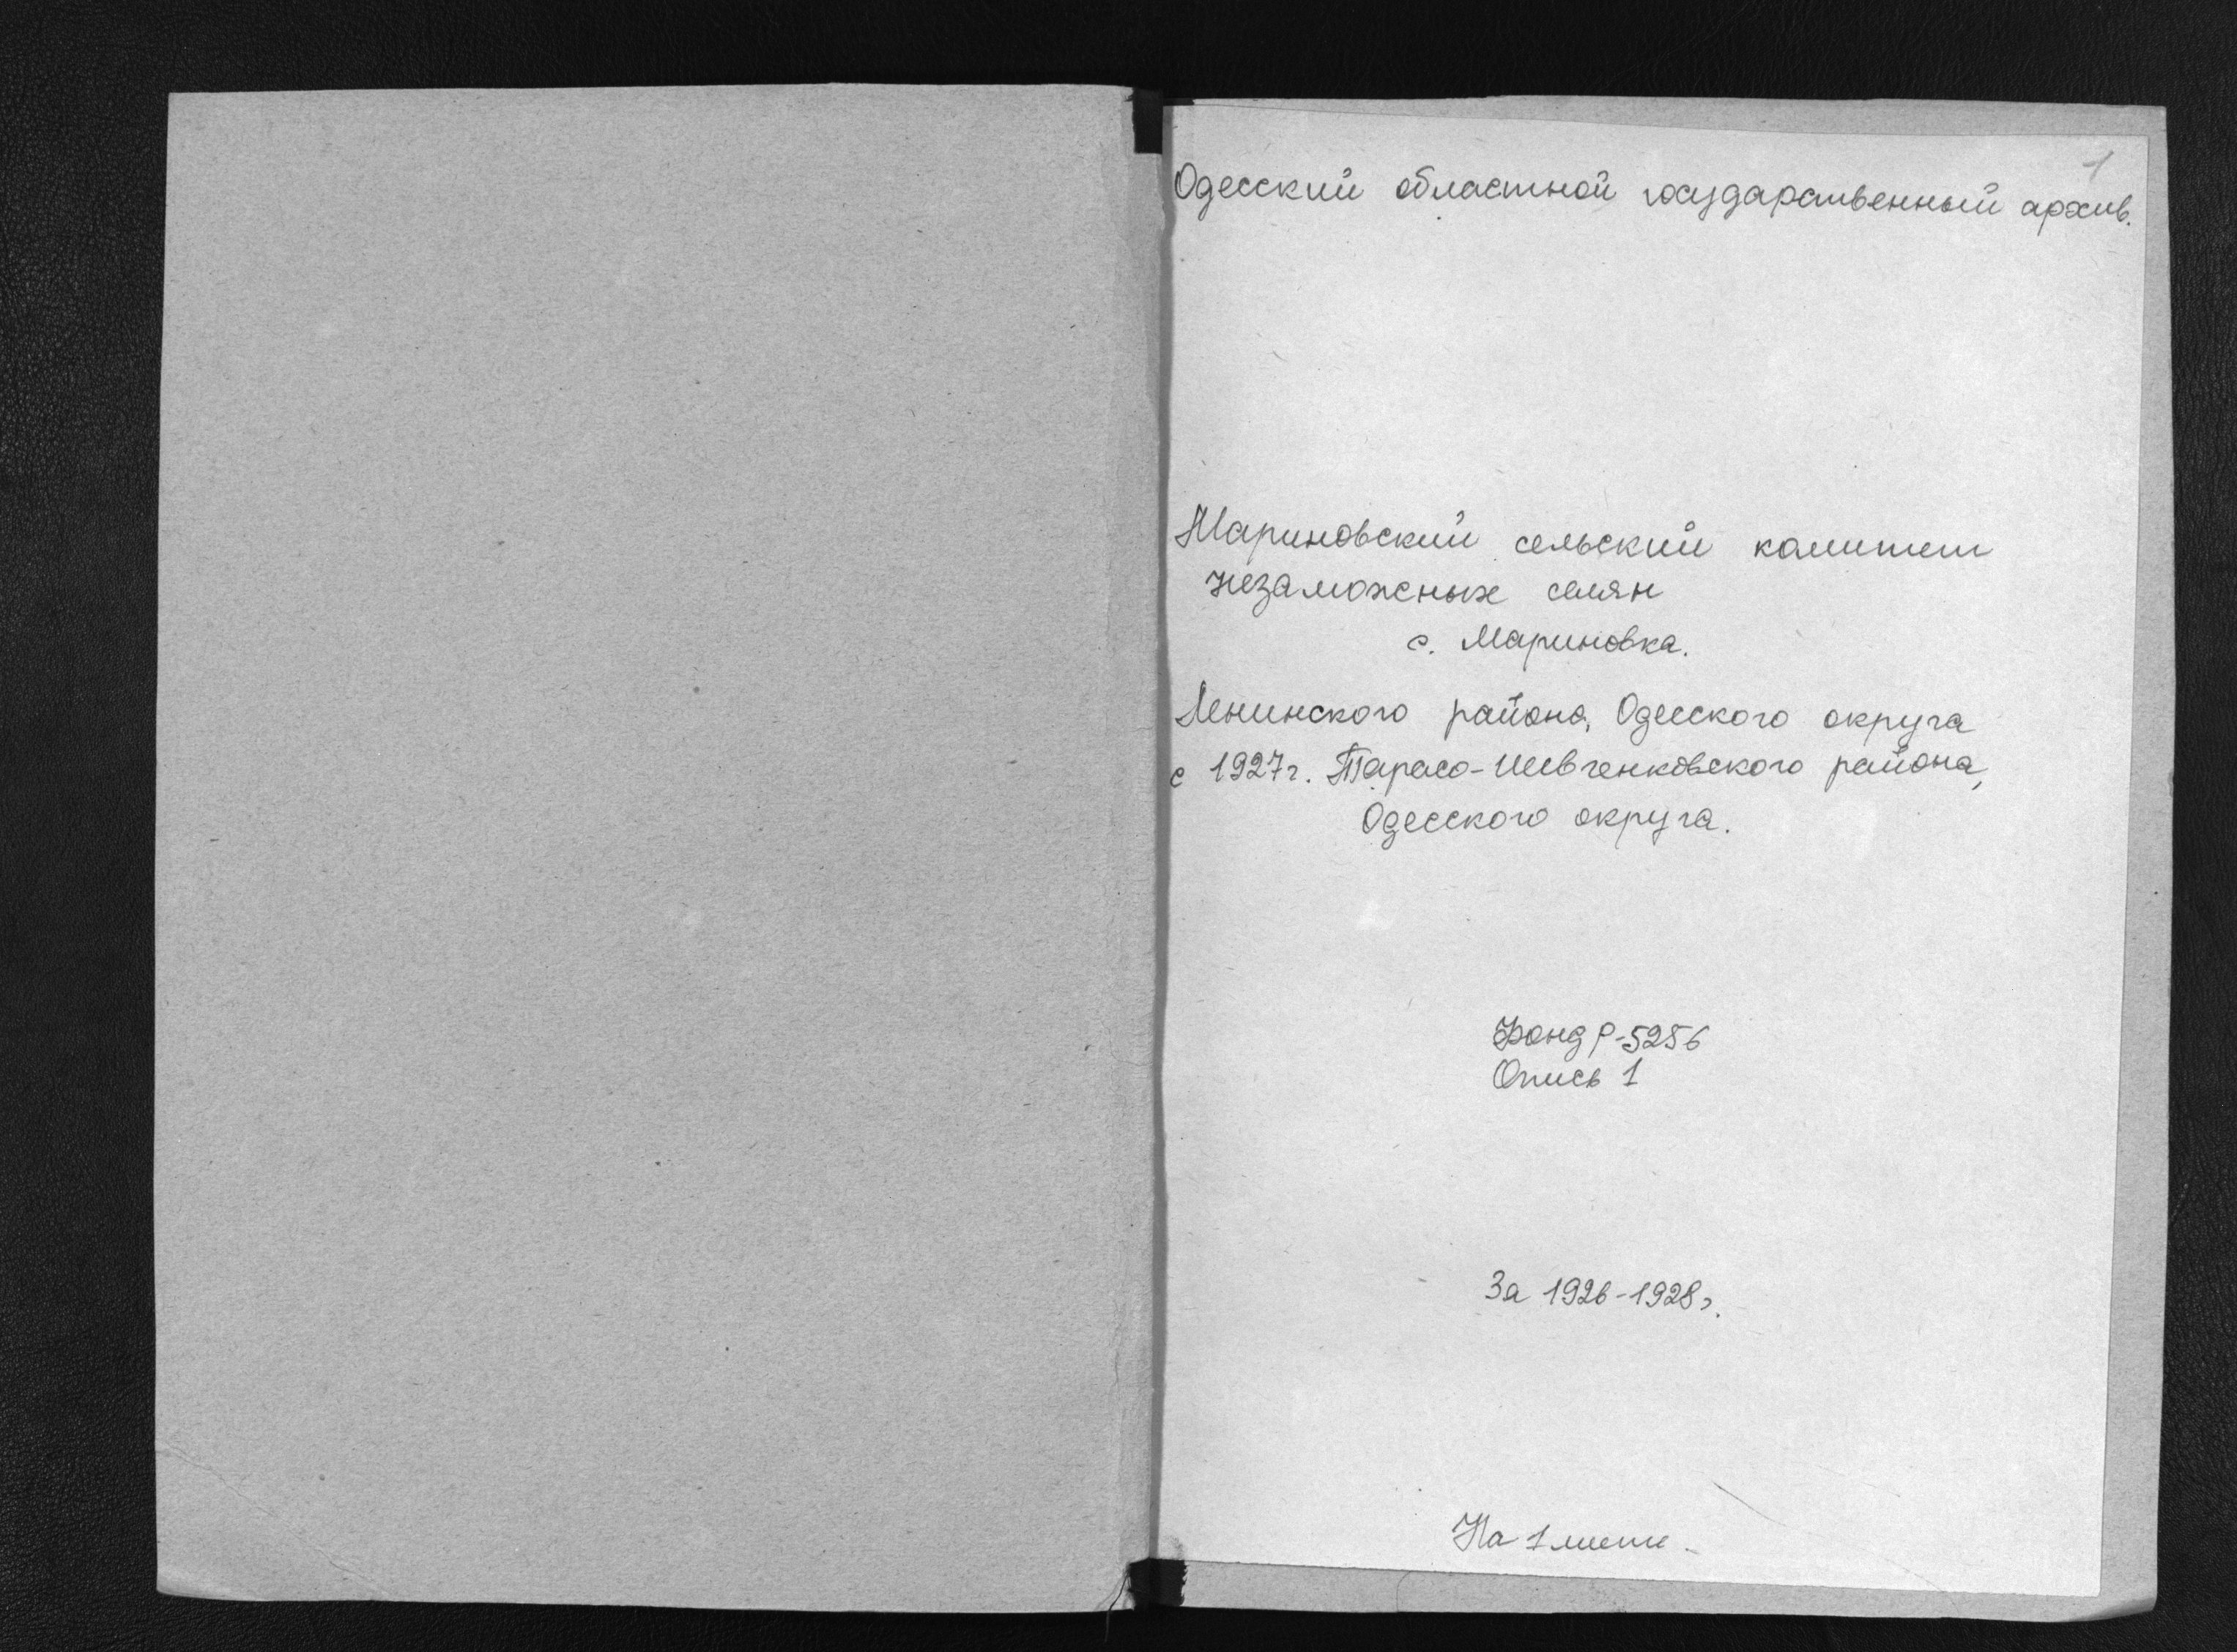 1
Одесский областной государственный архив.
Мариновский сельский комитет
незаможных селян
с. Мариновка.
Ленинского района, Одесского округа
с 1927г. Тарасо-Шевченковского района,
Одесского округа.
Фонд Р-5256
Опись 1
За 1926-1928г.
На 1 листе.